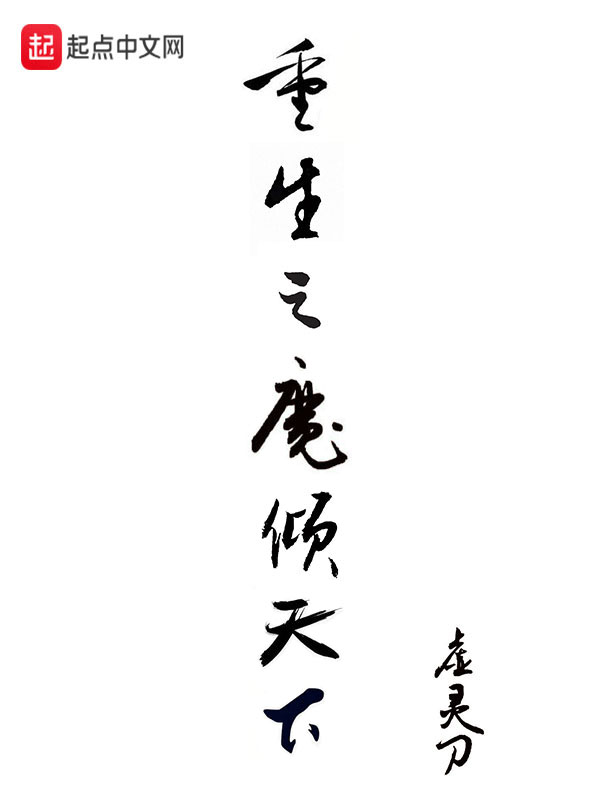 起 起点中文网
重生之魔倾天下
虚灵刀